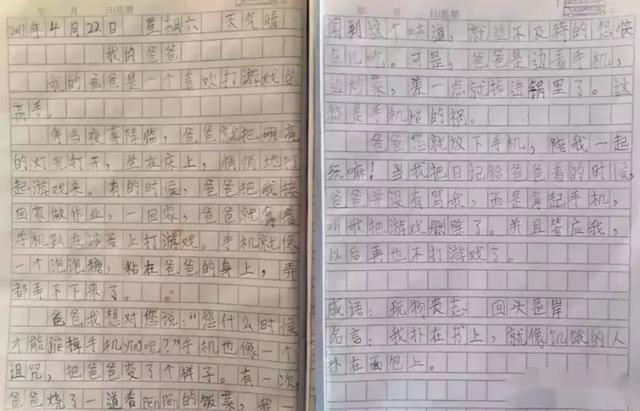 2017年4月22日 星期六 天气晴
我的爸爸
我的爸爸是一个喜欢打游戏的
高手。
每当夜幕降临，爸爸就把明亮
的灯光打开，坐在床上，悄悄地打
起游戏来。有的时候，爸爸把我接
回家做作业，一回家，爸爸就拿着
手机趴在沙发上打游戏。手机就像
一个泡泡糖，粘在爸爸的身上，弄
都弄不下来了。
爸爸我想对您说：“您什么时候
才能jie掉手机yin呢？”手机也像一个
诅咒，把爸爸变了个样子。有一次，
爸爸烧了一道香pēnpēn的饭菜，我一
年 月 日 星期
闻到这个味道，就迫不及待的想快
点儿吃。可是，爸爸是边看手机，
边炒菜，差一点就掉进锅里了。这
都是手机惹的祸。
爸爸您就放下手机，陪我一起
玩嘛！当我把日记给爸爸看的时候，
爸爸并没有骂我，而是拿起手机，
叫我把游戏删除了。并且答应我，
以后再也不打游戏了。
成语：玩物丧志 回头是岸
名言：我扑在书上，就像饥饿的人
扑在面包上。